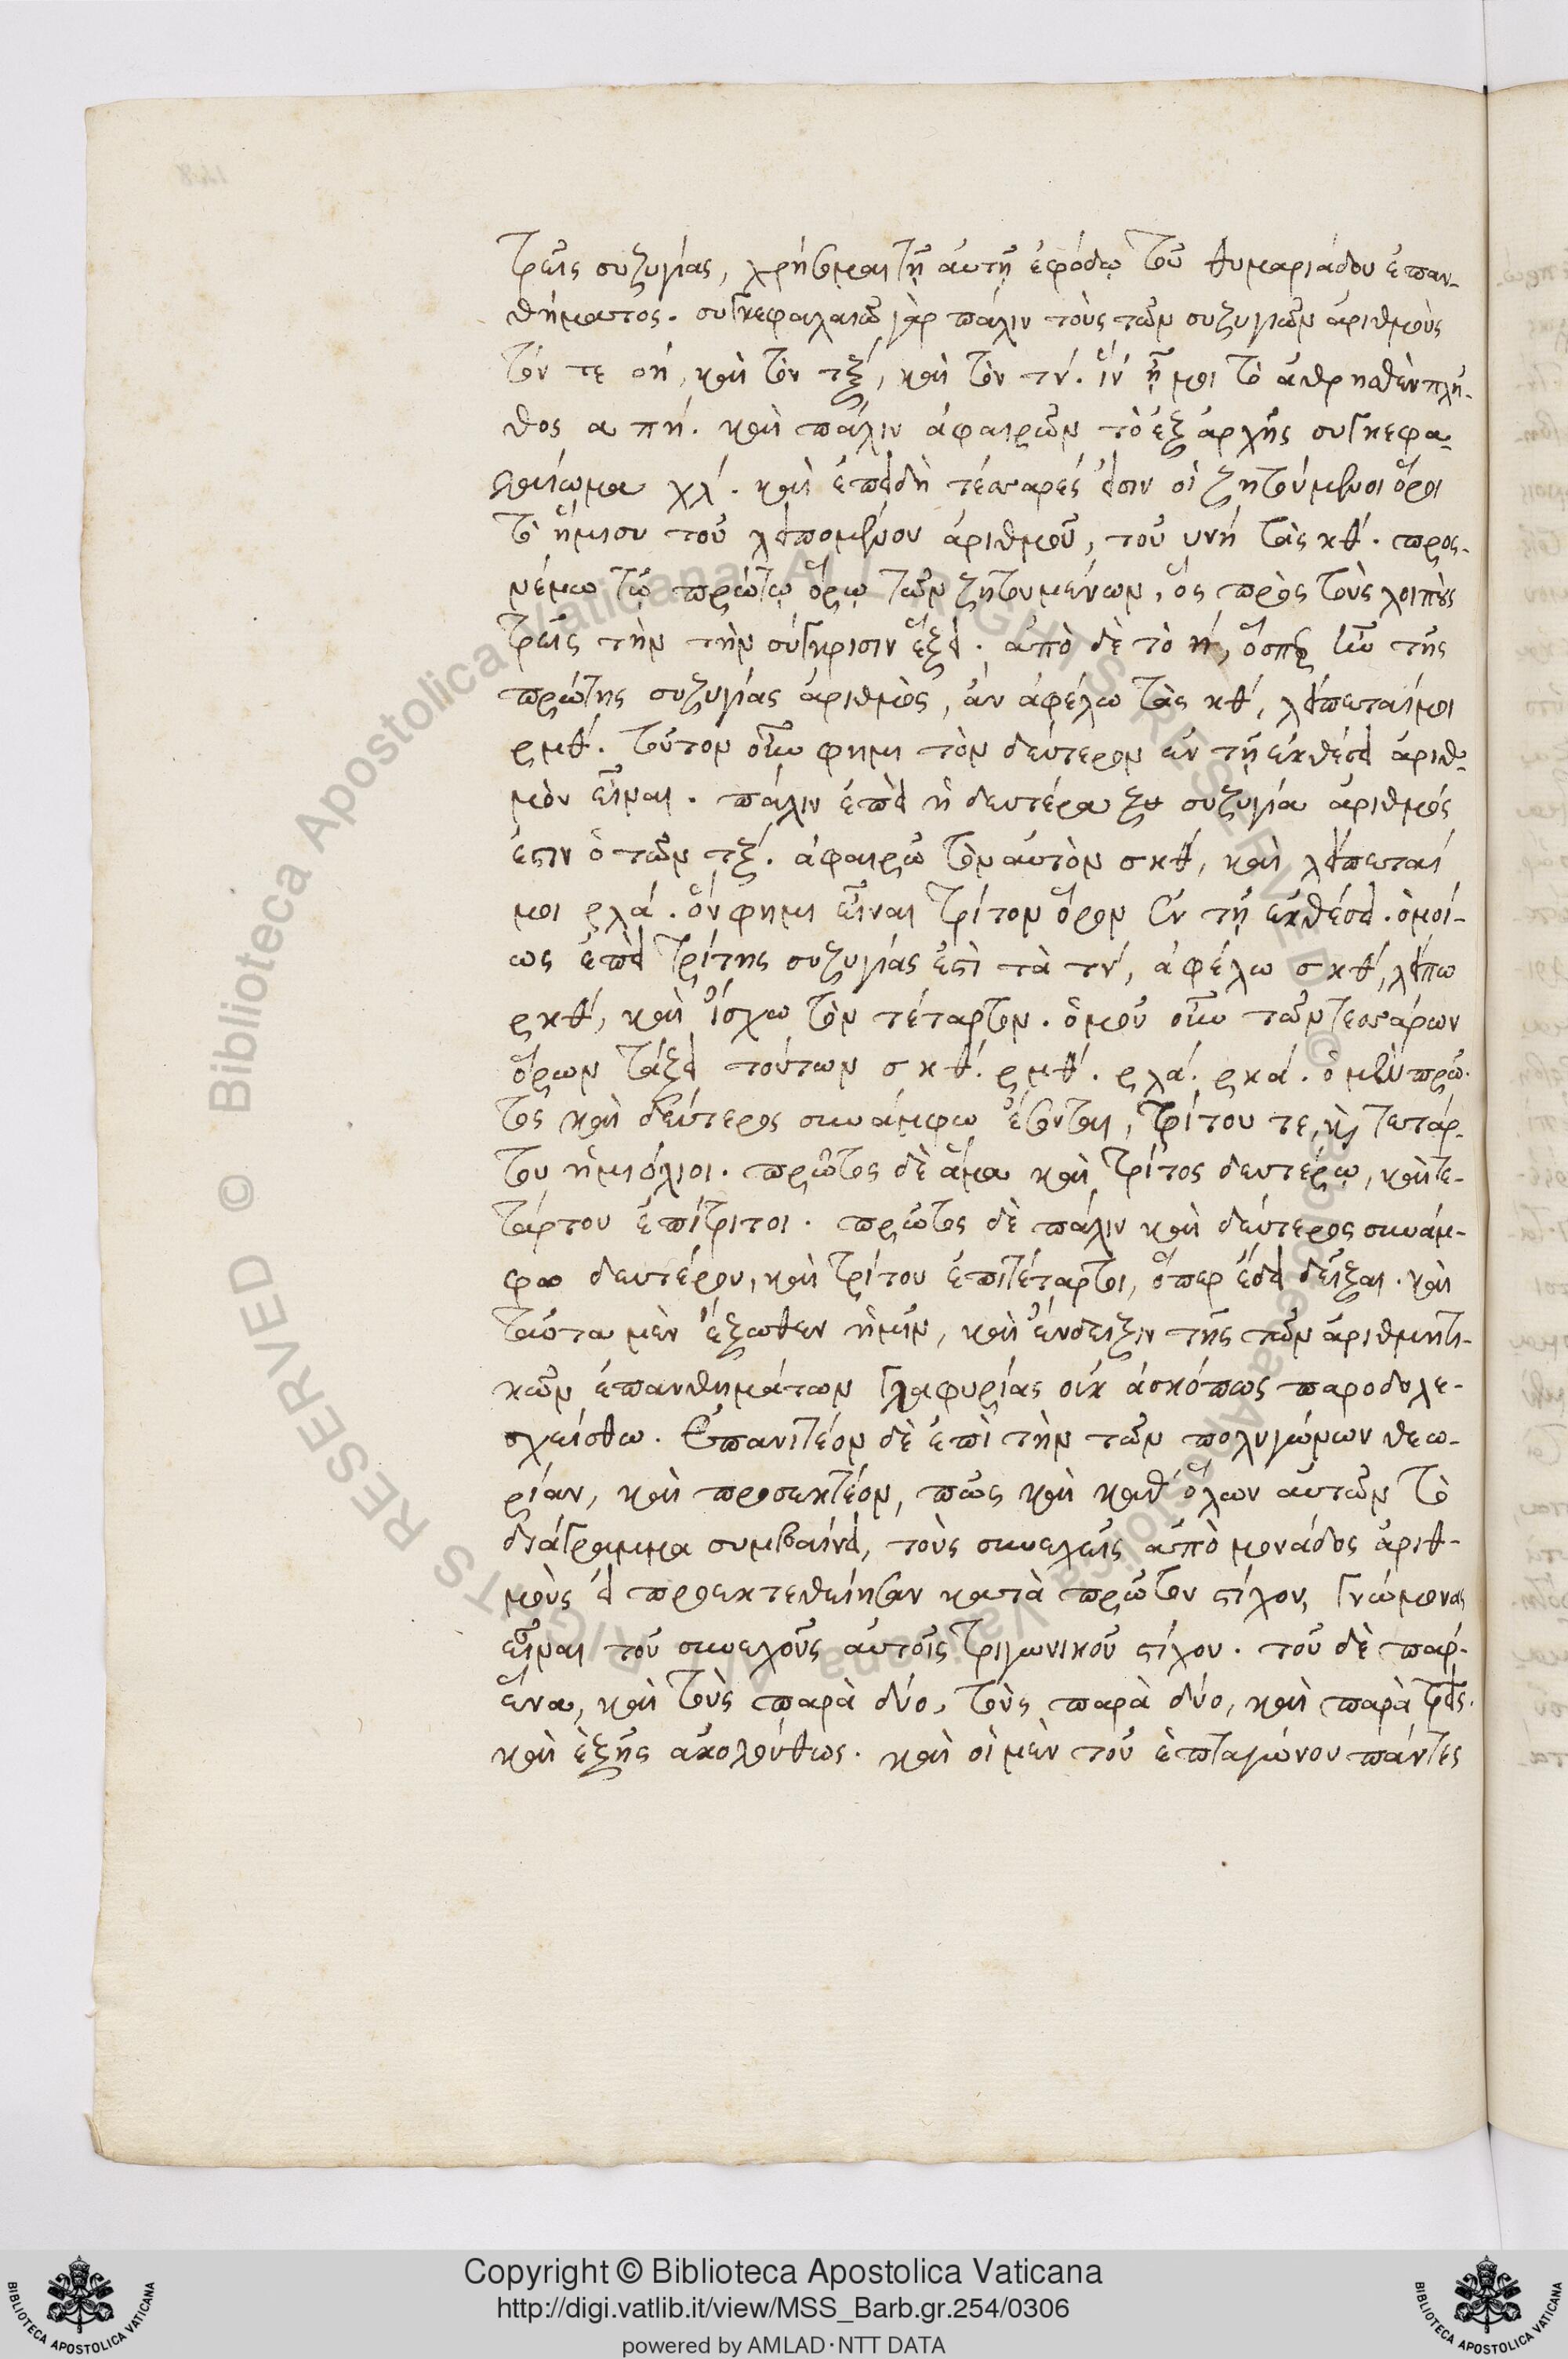 τρεῖς συζυγίας, χρήσομαι τῇ αὐτῇ ἐφόδῳ τοῦ θυμαριάδου ἐπαν-
θήματος. συγκεφαλαιῶ γὰρ πάλιν τοὺς τῶν συζυγιῶν ἀριθμοὺς
τόν τε οή, καὶ τὸν τξ́, καὶ τὸν τν́. ἵν ᾖ μοι τὸ ἀθρησθὲν πλῆ-
θος α πή. καὶ πάλιν ἀφαιρῶν τὸ ἐξ ἀρχῆς συγκεφα-
λαίωμα χλ́. καὶ ἐπειδὴ τέσσαρές εἰσιν οἱ ζητούμενοι ὅροι
τὸ ἥμισυ τοῦ λειπομένου ἀριθμοῦ, τοῦ υνή τὰς κθ́. προς-
νέμω τῷ πρώτῳ ὅρῳ τῶν ζητουμένων, ὃς πρὸς τοὺς λοιποὺς
τρεῖς τὴν τὴν σύγκρισιν ἕξει. ἀπὸ δὲ τὸ ή, ὅσπερ ἦν τῆς
πρώτης συζυγίας ἀριθμὸς, ἂν ἀφέλω τὰς κθ́, λείπεταί μοι
ρμθ́. τοῦτον οὖν φημι τὸν δεύτερον ἐν τῇ ἐκθέσει ἀριθ-
μὸν εἶναι. πάλιν ἐπεὶ ἡ δευτέρα συζυγία ἀριθμός
ἐστιν ὁ τῶν τξ́. ἀφαιρῶ τὸν αὐτὸν σκθ́, καὶ λείπεταί
μοι ρλά. ὅν φημι εἶναι τρίτον ὅρον ἐν τῇ ἐκθέσει. ὁμοί-
ως ἐπεὶ τρίτης συζυγίας ἐστὶ τὰ τν́, ἀφέλω σκθ́, λείπω
ρκθ́, καὶ ἴσχω τὸν τέταρτον. ὁμοῦ οὖν τῶν τεσσάρων
ὅρων τάξει τούτων σκθ́. ρμθ́. ρλά. ρκά. ὁ μὲν πρῶ-
τος καὶ δεύτερος συνάμφω ἔσονται, τρίτου τε, καὶ τετάρ-
του ἡμιόλιοι. πρῶτος δὲ ἅμα καὶ τρίτος δευτέρῳ, καὶ τε-
τάρτου ἐπίτριτοι. πρῶτος δὲ πάλιν καὶ δεύτερος συνάμ-
φω δευτέρου, καὶ τρίτου ἐπιτέταρτοι, ὅπερ ἔδει δεῖξαι. καὶ
ταῦτα μὲν ἔξωθεν ἡμῖν, καὶ ἔνδειξιν τῆς τῶν ἀριθμητι-
κῶν ἐπανθημάτων γλαφυρίας οὐκ ἀσκόπως παροδολε-
σχείσθω. Ἐπανιτέον δὲ ἐπὶ τὴν τῶν πολυγώνων θεω-
ρίαν, καὶ προσεκτέον, πῶς καὶ καθ ὅλων αὐτῶν τὸ
διάγραμμα συμβαίνει, τοὺς συνελεῖς ἀπὸ μονάδος ἀριθ-
μοὺς εἰ προεκτεθείησαν κατὰ πρῶτον στίχον, γνώμονας
εἶναι τοῦ συνελοῦς αὐτοῖς τριγωνικοῦ στίχου. τοῦ δὲ παρ́-
ἕνα, καὶ τοὺς παρὰ δύο, τοὺς παρὰ δύο, καὶ παρὰ τρεῖς.
καὶ ἑξῆς ἀκολούθως. καὶ οἱ μὲν τοῦ ἑπταγώνου πάντες
Copyright © Biblioteca Apostolica Vaticana
http://digi.vatlib.it/view/MSS_Barb.gr.254/0306
powered by AMLAD·NTT DATA